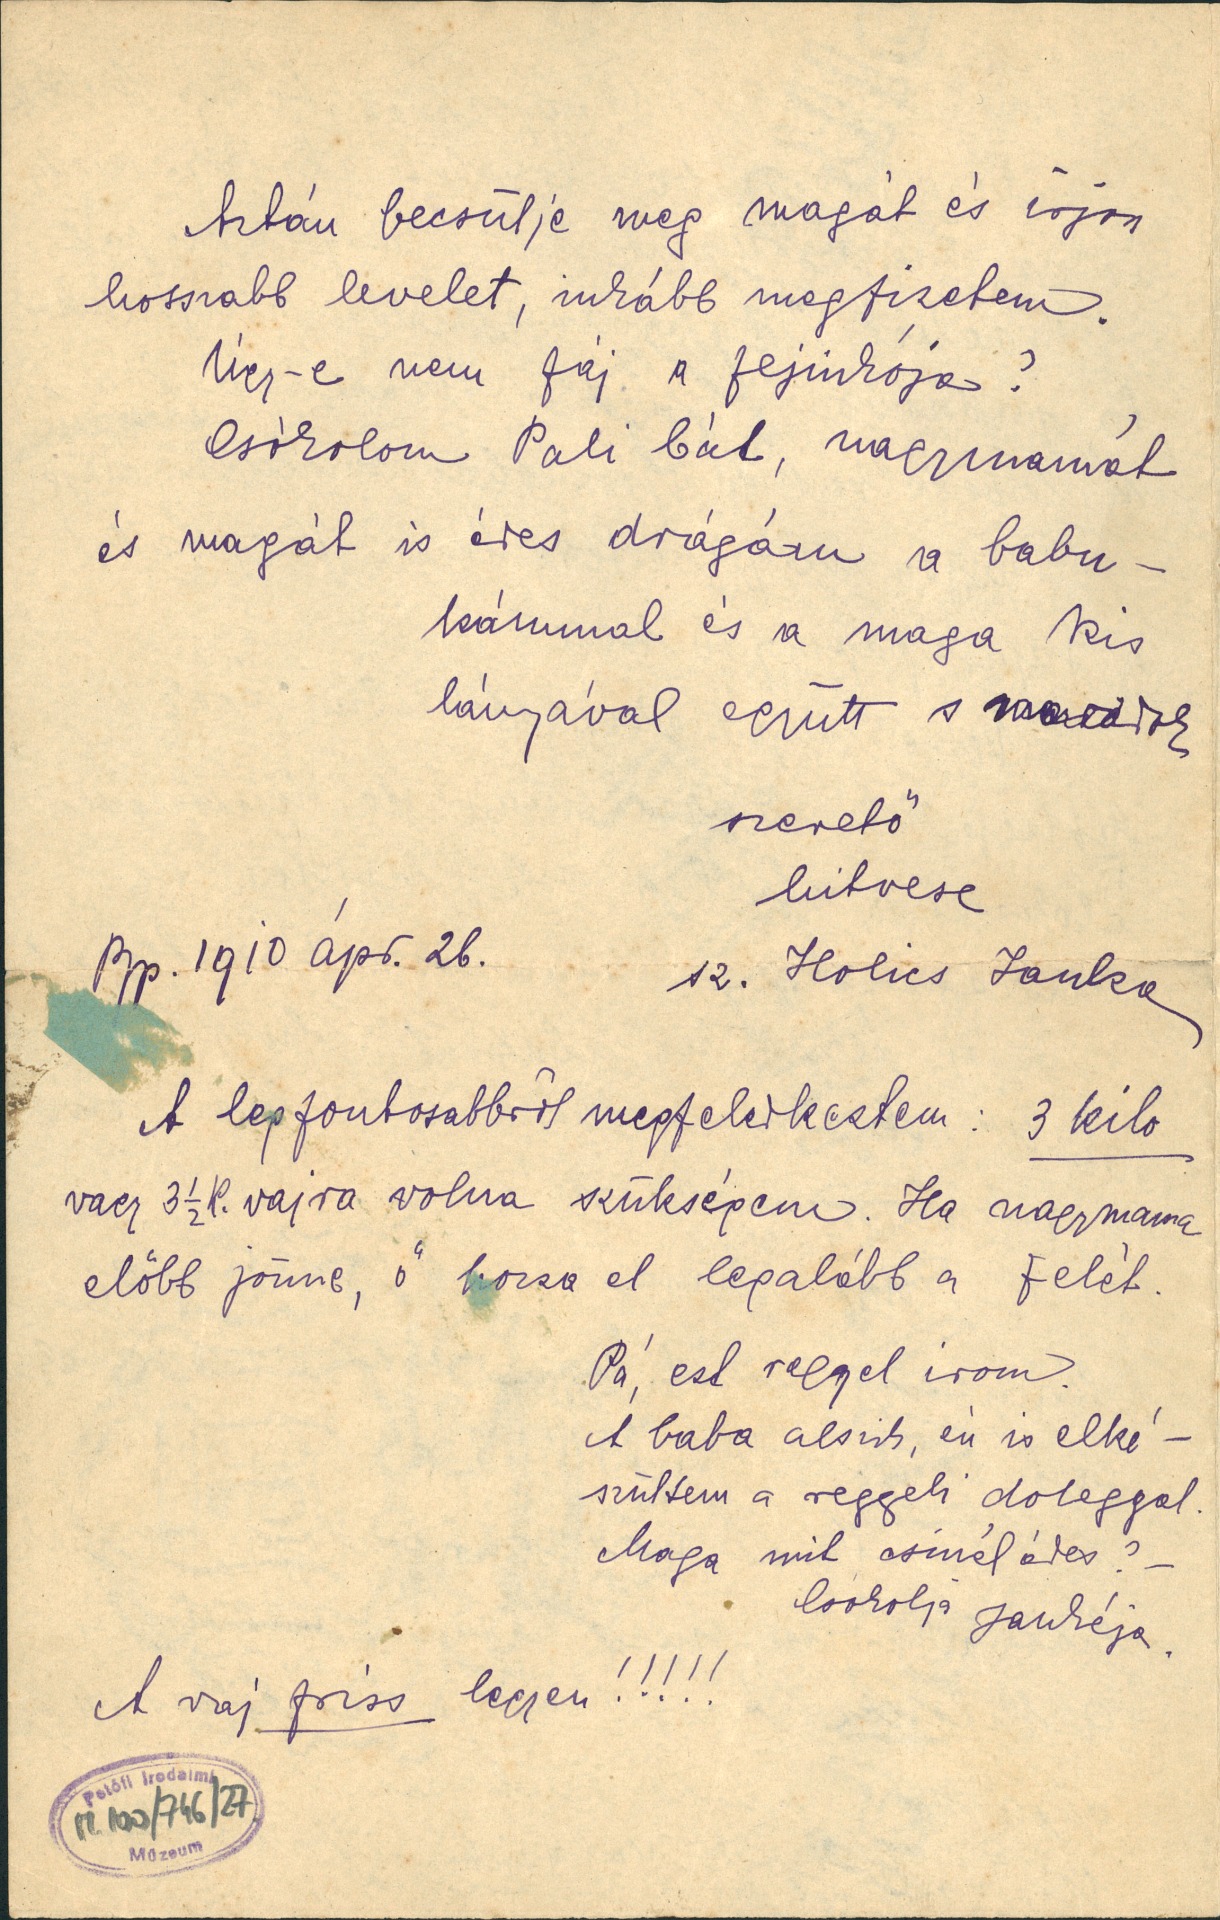 Aztán becsülje meg magát és irjon
hosszabb levelet, inkább megfizetem.
Úgy-e nem fáj a fejinkója?
Csókolom Pali bát, nagymamát
és magát is édes drágám a babu-
kámmal és a maga kis
lányával együtt s maradok
szerető
hitvese
Bp. 1910 ápr. 26.
sz. Holics Janka
A legfontosabbról megfeledkeztem: 3 kilo
vagy 3½ k. vajra volna szükségem. Ha nagymama
előbb jönne, ő hozza el legalább a felét.
Pá, ezt reggel irom.
A baba alszik, én is elké-
szültem a reggeli dologgal.
Maga mit csinál édes? -
Csókolja Jankája.
A vaj friss legyen!!!!!
Petőfi Irodalmi
M. 100/746/27
Múzeum